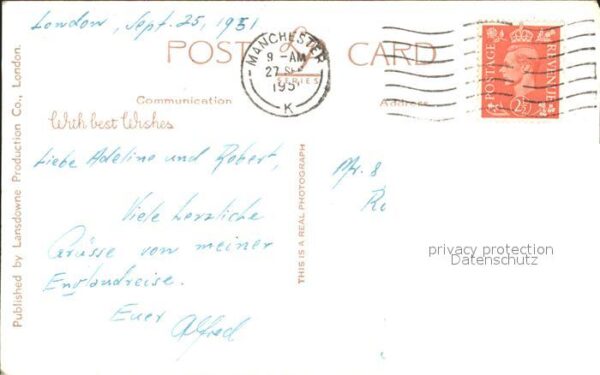 London, Sept. 25, 1951
POST CARD
SERIES
MANCHESTER
9 - AM
27 SEP
195
K
POSTAGE
REVENUE
2½
Communication
Address
With best Wishes
Liebe Adeline und Robert,
Viele herzliche
Grüsse von meiner
Englandreise.
Euer
Alfred
Published by Lansdowne Production Co., London.
THIS IS A REAL PHOTOGRAPH
Mr. &
privacy protection
Datenschutz